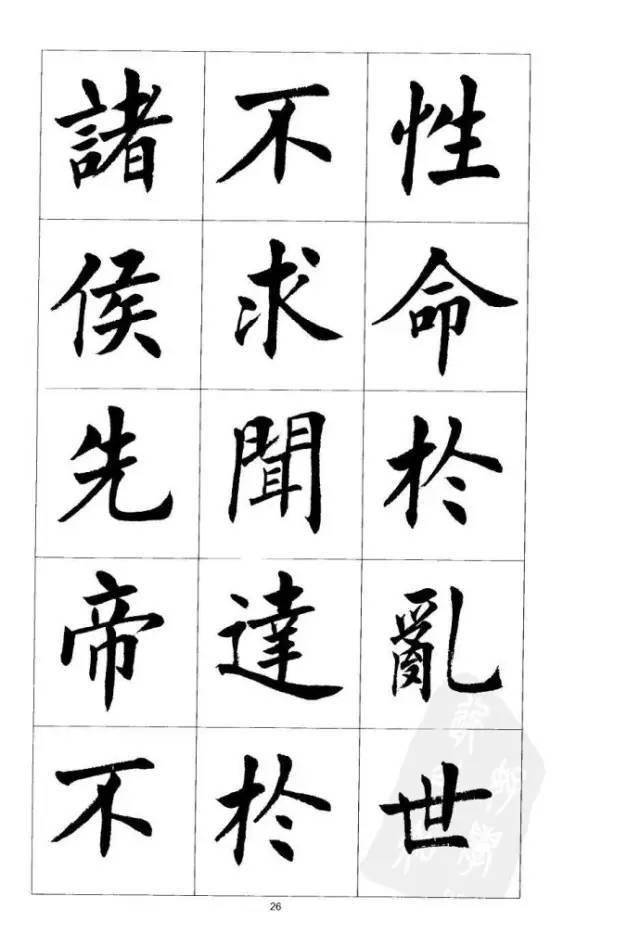 性命於亂世
不求聞達於
諸侯先帝不
26